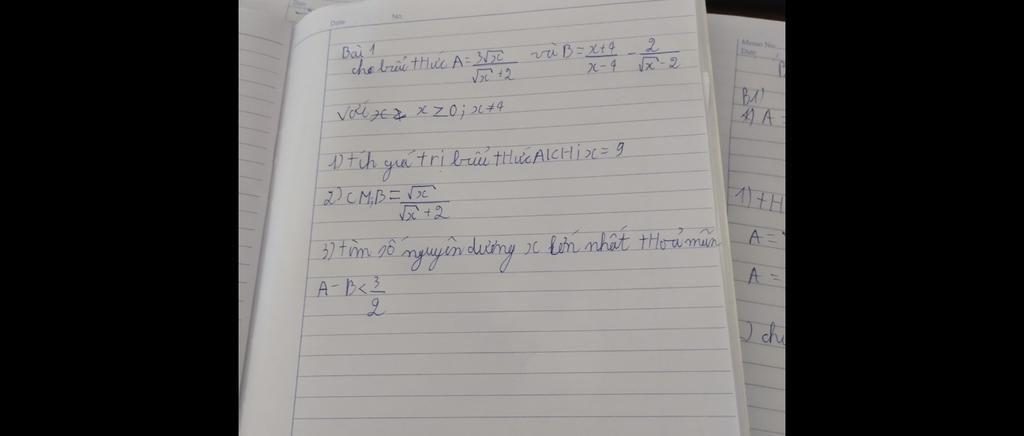 Date No.
Bài 1
cho biểu tHức A = 3√x / (√x + 2) và B = (x+4)/(x-4) - 2/(√x - 2)
Với x ≥ 0; x ≠ 4
1) tíh giá trị biểu tHức A KHi x = 9
2) CM: B = √x / (√x + 2)
3) tìm số nguyên dương x lớn nhất tHoả mãn
A - B < 3/2
Memo No.
Date
B
B1)
1) A =
1) tH
A =
A =
) ch